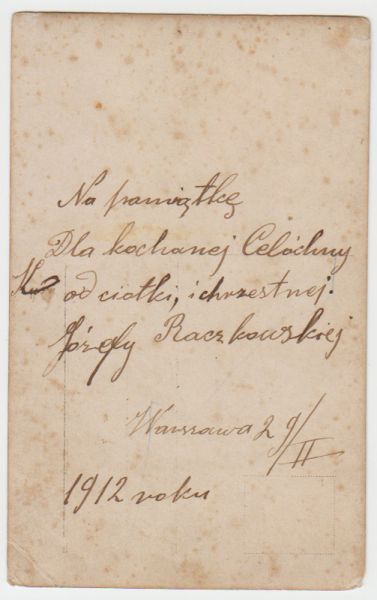 Na pamiątkę
Dla kochanej Celóchny
od ciotki, i chrzestnej.
Józefy Raczkowskiej
Warszawa 29/II
1912 roku